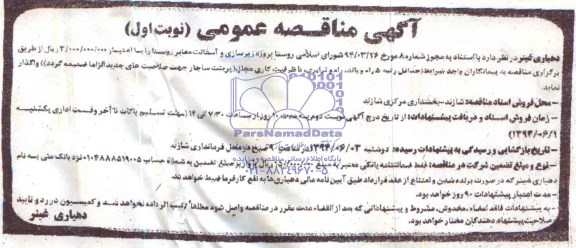 آگهی مناقصه عمومی (نوبت اول)
دهیاری غینر در نظر دارد با استناد به مجوز شماره ۸ مورخ ۹۴/۰۳/۲۶ شورای اسلامی روستا پروژه زیرسازی و آسفالت معابر روستا را با اعتبار ۳/۰۰۰/۰۰۰/۰۰۰ ریال از طریق
برگزاری مناقصه به پیمانکاران واجد شرایط (حداقل رتبه ۵ راه و باند، راه و ترابری با ظرفیت کاری مجاز) (پرینت ساجار جهت صلاحیت های جدید الزاما ضمیمه گردد) واگذار
نماید
- محل فروش اسناد مناقصه: شازند - بخشداری مرکزی شازند
- زمان فروش اسناد و دریافت پیشنهادات: از تاریخ درج آگهی نوبت دوم به مدت ۱۰ روز از ساعت ۷/۳۰ الی ۱۴ (مهلت تسلیم پاکات تا آخر وقت اداری یکشنبه
۱۳۹۴/۰۶/۱)
- تاریخ بازگشایی و رسیدگی به پیشنهادات رسیده: دوشنبه ۱۳۹۴/۰۶/۰۲ ساعت ۹ صبح در محل فرمانداری شازند
- نوع و مبلغ تضمین شرکت در مناقصه: فقط ضمانتنامه بانکی معتبر به مبلغ ریال یا واریز مبلغ تضمین به شماره حساب ۰۱۰۴۸۸۸۵۱۹۰۰۵ نزد بانک ملی بنام
دهیاری غینر که در صورت برنده شدن و امتناع از عقد قرارداد طبق آیین نامه مالی دهیاری ها به نفع کارفرما ضبط خواهد شد.
- مدت اعتبار پیشنهادات ۹۰ روز خواهد بود.
- به پیشنهادات فاقد امضاء، مخدوش، مشروط و پیشنهاداتی که بعد از انقضاء مدت مقرر در مناقصه واصل شود مطلقاً ترتیب اثر داده نخواهد شد و کمیسیون در رد و تایید
صلاحیت پیشنهاد دهندگان مختار خواهد بود.
دهیاری غینر
ParsNamadData
پایگاه اطلاع رسانی مناقصه و مزایده
۰۲۱-۸۸۳۴۹۶۷۰-۵